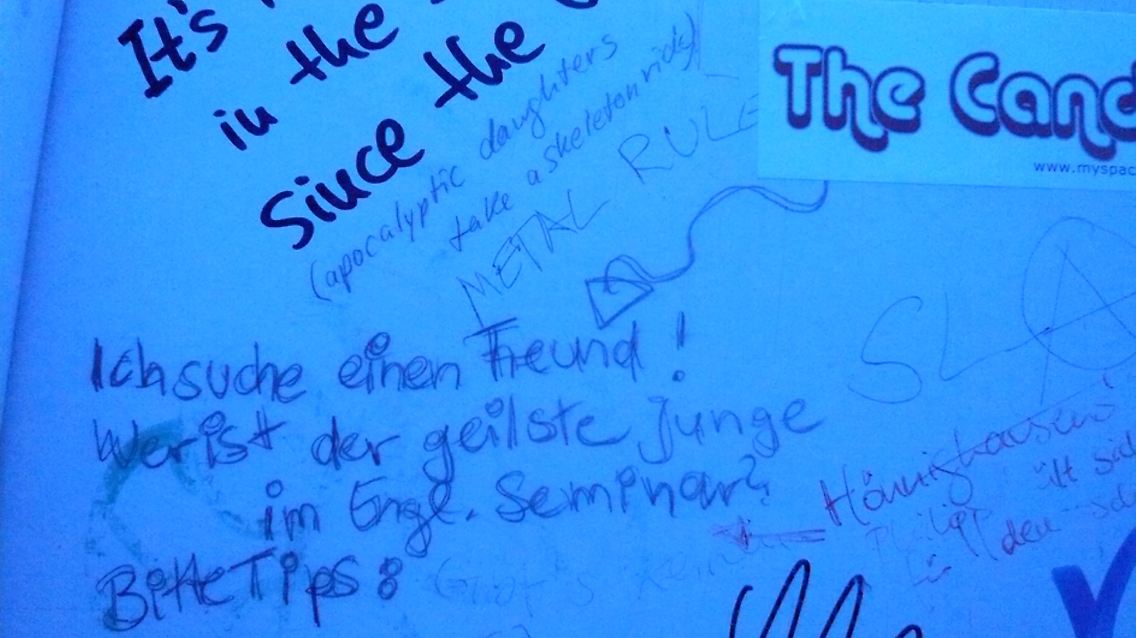 It's
in the
since the
(apocalyptic daughters
take a skeleton ride)
METAL RULE
The Cand
www.myspac
SLA
Ich suche einen Freund!
Wer ist der geilste Junge
im Engl. Seminar?
Bitte Tips:
Gibt's keinen
Hönnighausen!
Philipp